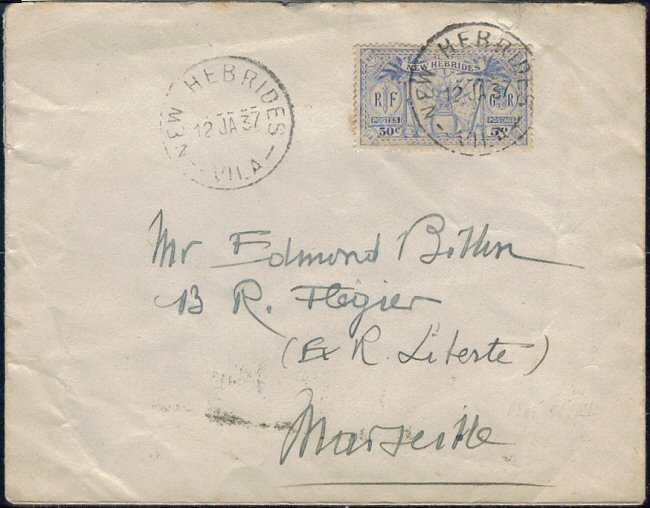 NEW HEBRIDES
12 JA 37
VILA
NEW HEBRIDES
RF
GR
POSTES
POSTAGE
50c
5d
NEW HEBRIDES
12 JA 37
VILA
Mr Edmond
13 R. Flégier
(Ex R. Liberte)
Marseille